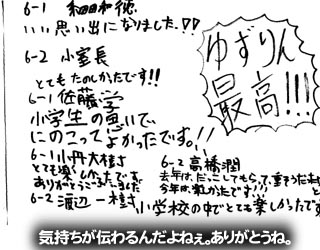 6-1 和田和徳
いい思い出になりました.!!
6-2 小室長
とてもたのしかったです!!
6-1 佐藤学
小学生の
にのこってよかったです。!!
6-1 小丹大樹
とても楽しかったです
ありがとうございました
6-2 渡辺一樹
ゆずりん
最高!!!
6-2 高橋潤
去年は、だっこしてもらって、
今年は、
小学校の中でとても楽しかったです
気持ちが伝わるんだよねぇ。ありがとうね。